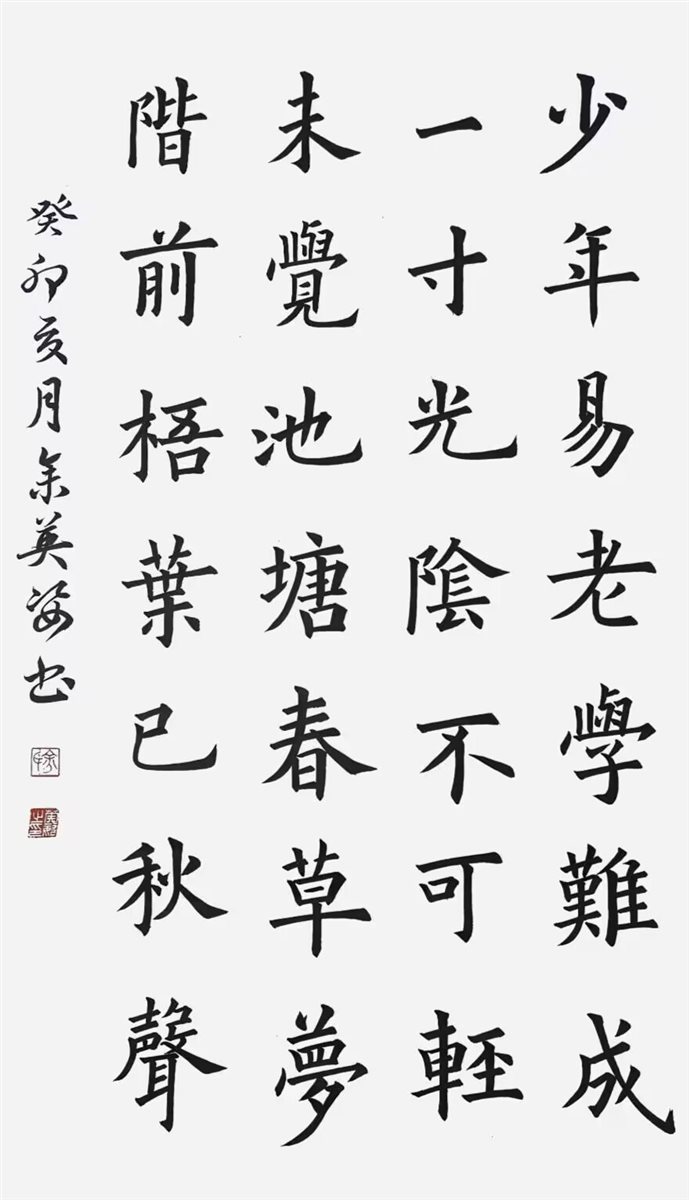 少年易老學難成
一寸光陰不可輕
未覺池塘春草夢
階前梧葉已秋聲
癸卯亥月余英姿书